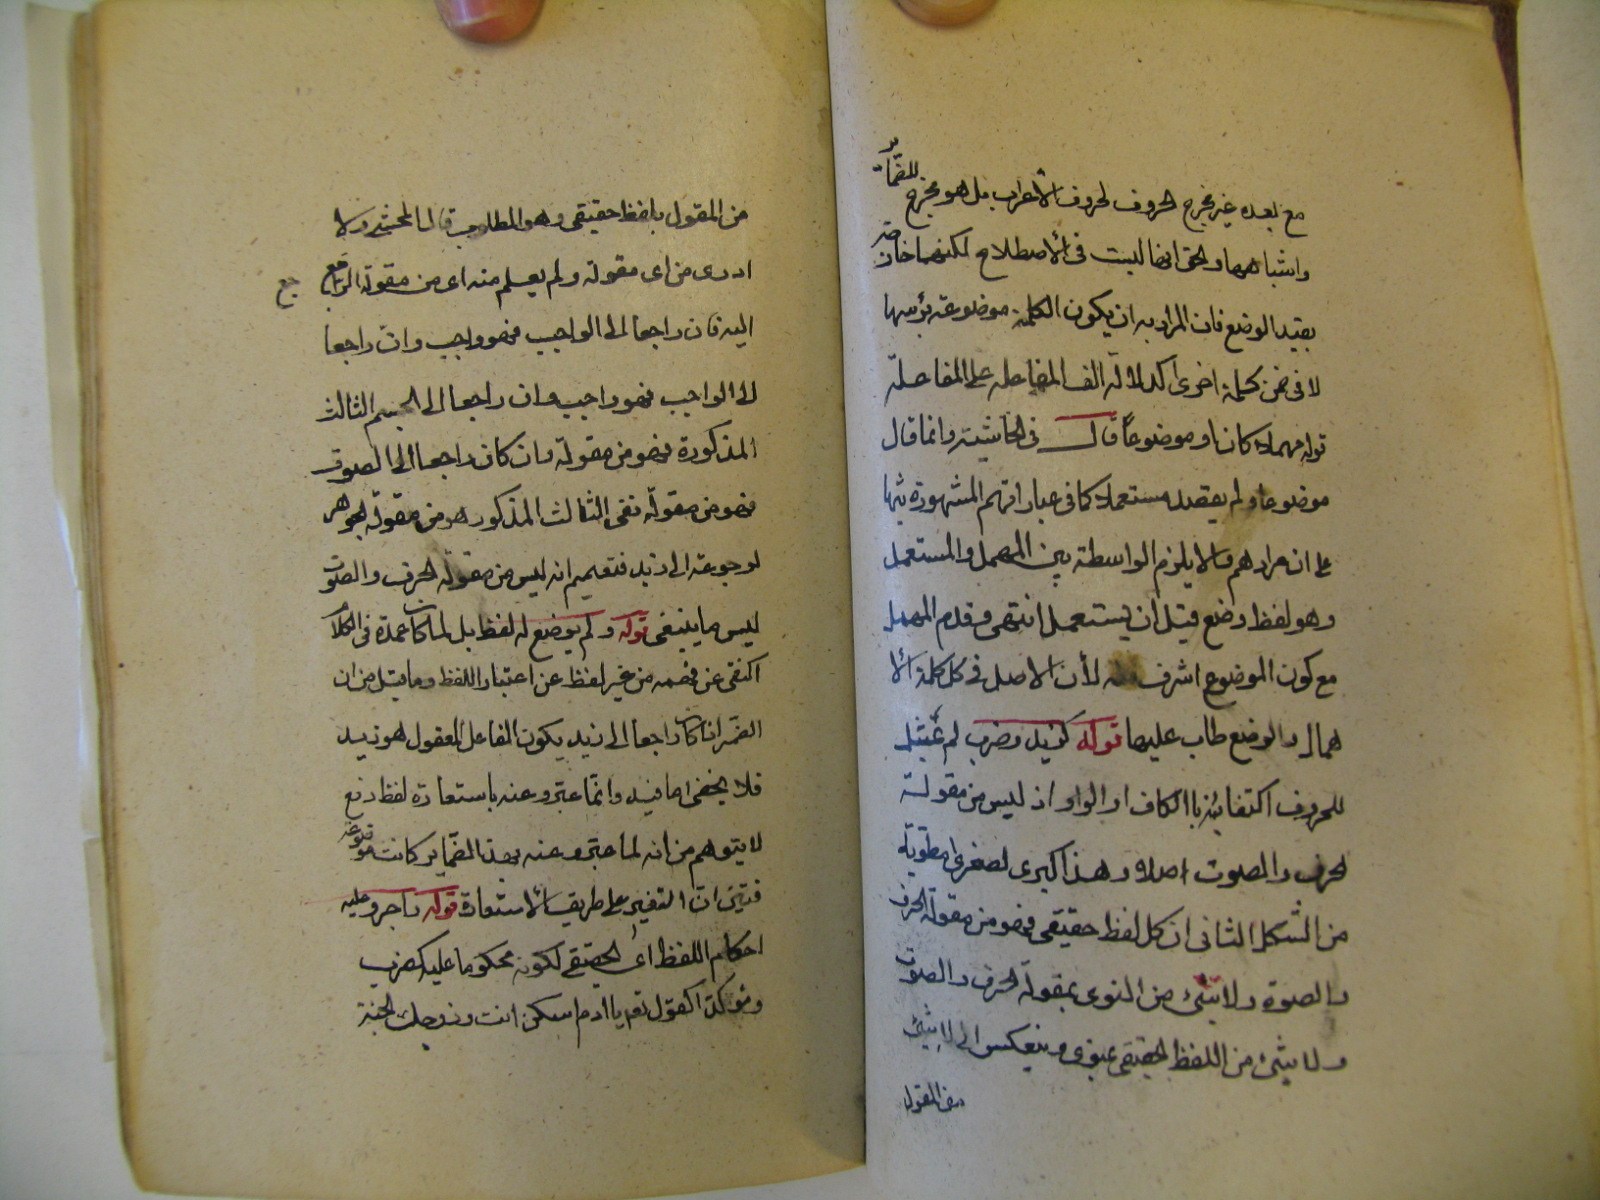 مع بعده غير مخرج لحروف الاعراب بل هو مخرج للضمائر
واشباهها والحق انها ليست في الاصطلاح لكنها خارجة
بقيد الوضع فان المراد به ان يكون الكلمة موضوعة برأسها
لا في ضمن كلمة اخرى كدلالة الف المفاعلة على المفاعلة
قوله مهملا كان او موضوعا قال في الحاشية وانما قال
موضوعا ولم يقل مستعملا كما في عباراتهم المشهورة تنبيها
على ان مرادهم والا يلزم الواسطة بين المهمل والمستعمل
وهو لفظ وضع قبل ان يستعمل انتهى وقدم المهمل
مع كون الموضوع اشرف لأن الاصل في كل كلمة الا
همال والوضع طاب عليها قوله كزيد وضرب لم يمثل
للحروف اكتفاء باالكاف او الواو اذ ليس من مقولة
الحرف والصوت اصلا وهذا كبرى لصغرى مطوية
من الشكل الثاني ان كل لفظ حقيقي فهو من مقولة الحرف
والصوة ولا شئ من المنوى بمقولة الحرف والصوت
ولا شئ من اللفظ الحقيقي بمنوى وينعكس الى لا شئ
من المقول
من المقول بلفظ حقيقي وهو المطلوب قال المحشي ولا
ادرى من اى مقولة ولم يعلم منه اى من مقولة الراجع
اليه فان راجعا الى الواجب فهو واجب وان راجعا
الى الواجب فهو واجب وان راجعا الى الجسم الثالث
المذكورة فهو من مقولة وان كان راجعا الى الصوت
فهو من مقولة نفى الثالث المذكور هو من مقولة الجوهر
لرجوعه الى زيد فتعميم انه ليس من مقولة الحرف والصوت
ليس ما ينبغي قوله ولم يوضع له لفظ بل لما كان عمدة في الكلام
اكتفى عن فهمه من غير لفظ عن اعتبار اللفظ وما قيل من ان
الضمير اذا كان راجعا الى زيد يكون الفاعل المعقول هو زيد
فلا يخفى ما فيه وانما عبر وعنه باستعارة لفظ رفع
لا يتوهم من انه لما عبر وعنه بهذا الضماير كانت موضوعة
فتبين ان التعبير على طريق الاستعارة قوله واجر وعليه
احكام اللفظ اى الحقيقي لكونه محكوما عليه كضرب
ومؤكدا كقول تع يا ادم اسكن انت وزوجك الجنة